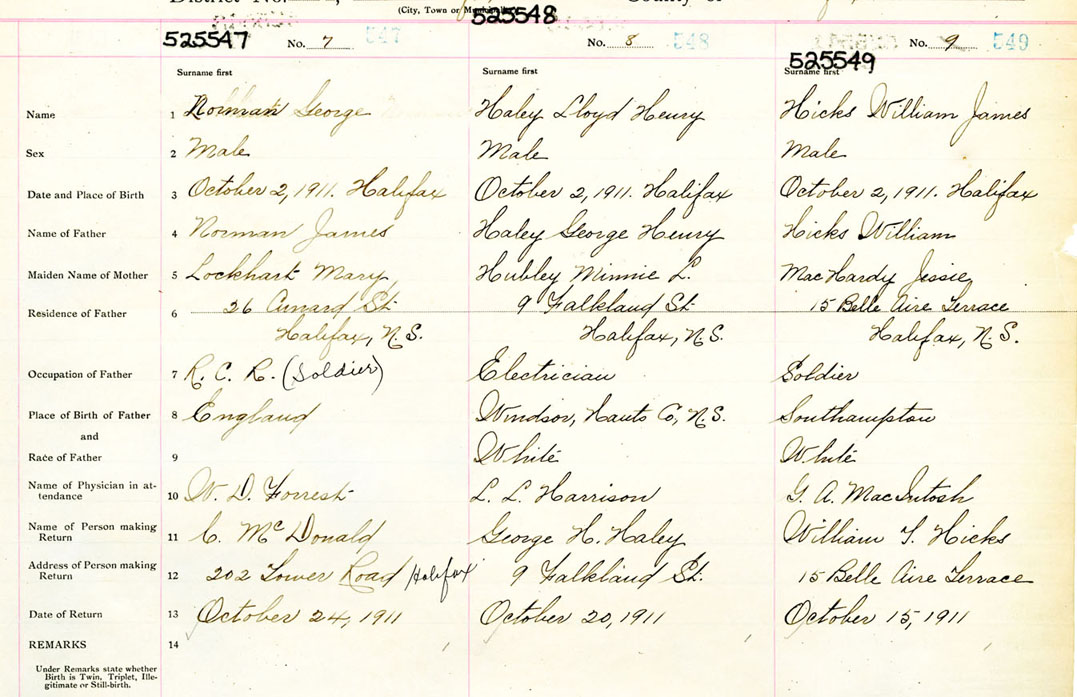 District No.
County of
(City, Town or Municipality)
525547 No. 7 547
525548 No. 8 548
525549 No. 9 549
Surname first Surname first Surname first
Name 1 Norman George Haley Lloyd Henry Hicks William James
Sex 2 Male Male Male
Date and Place of Birth 3 October 2, 1911. Halifax October 2, 1911. Halifax October 2, 1911. Halifax
Name of Father 4 Norman James Haley George Henry Hicks William
Maiden Name of Mother 5 Lockhart Mary Hubley Minnie L. MacHardy Jessie
Residence of Father 6 26 Cunard St. 9 Falkland St. 15 Belle Aire Terrace
Halifax, N.S. Halifax, N.S. Halifax, N.S.
Occupation of Father 7 R. C. R. (Soldier) Electrician Soldier
Place of Birth of Father 8 England Windsor, Hants Co, N.S. Southampton
and
Race of Father 9 White White
Name of Physician in at-
tendance 10 W. D. Forrest L. L. Harrison G. A. MacIntosh
Name of Person making
Return 11 C. McDonald George H. Haley William T. Hicks
Address of Person making
Return 12 202 Tower Road Halifax 9 Falkland St. 15 Belle Aire Terrace
Date of Return 13 October 24, 1911 October 20, 1911 October 15, 1911
REMARKS 14
Under Remarks state whether
Birth is Twin, Triplet, Ille-
gitimate or Still-birth.